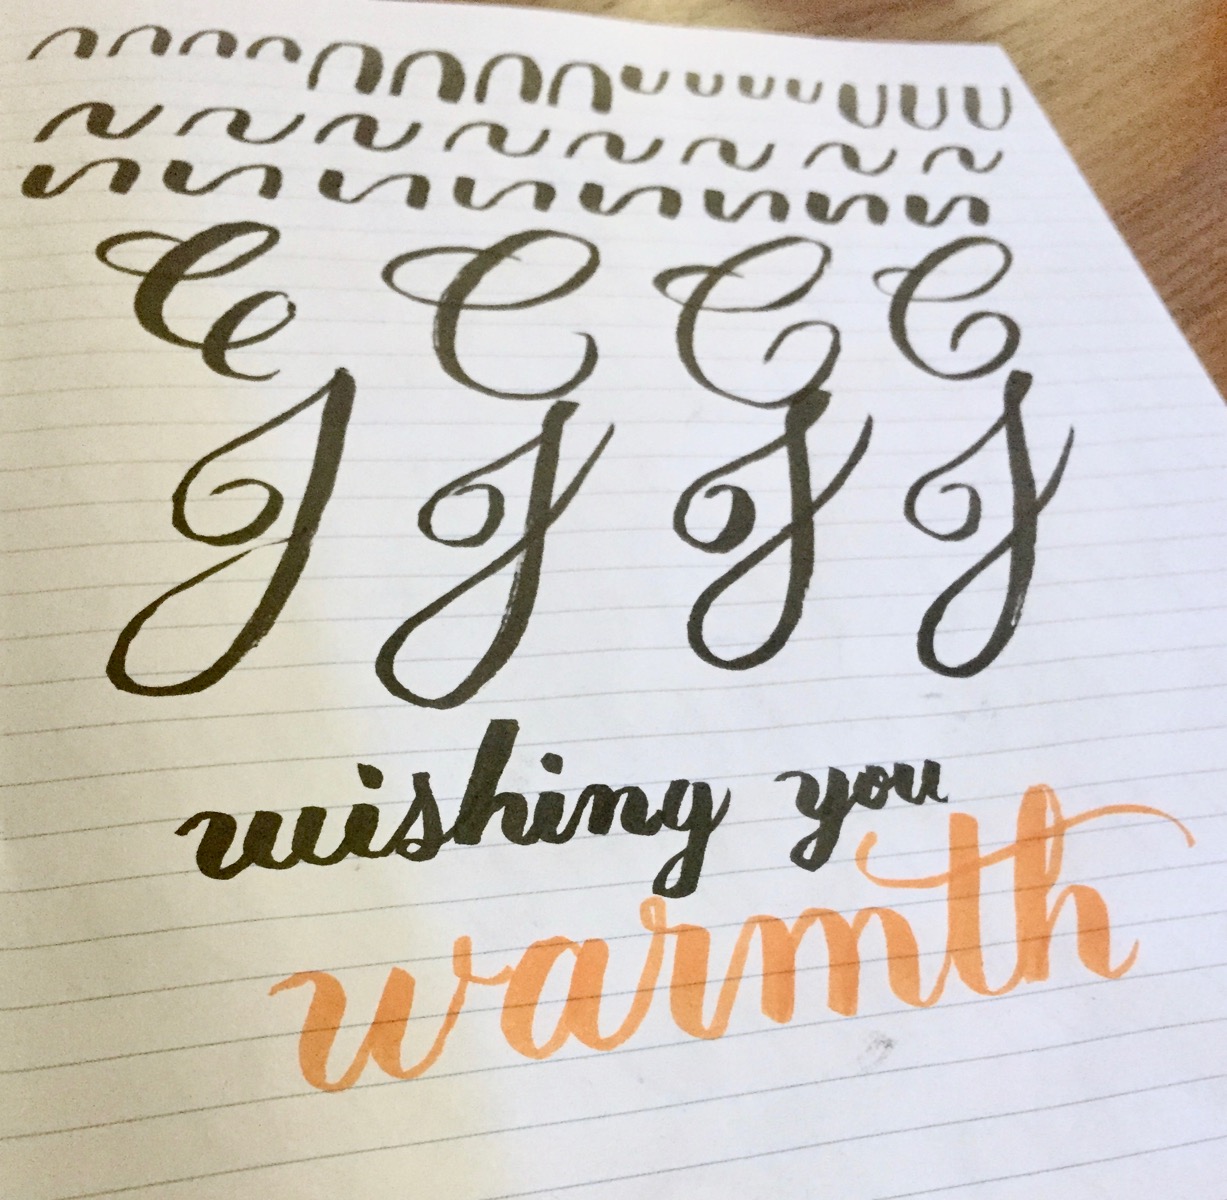 C C C C
J J J J
wishing you
warmth